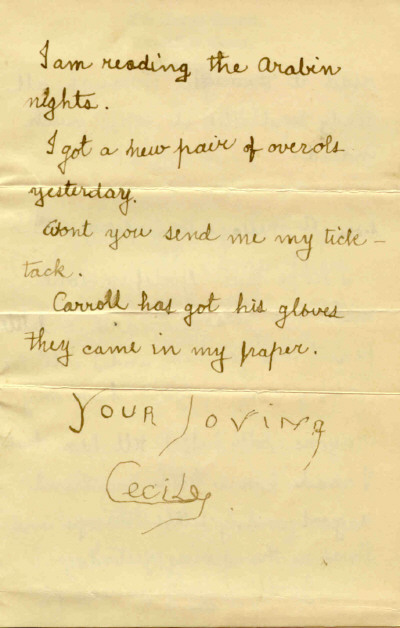 I am reading the Arabin
nights.
I got a new pair of overols
yesterday.
Wont you send me my tick-
tack.
Carroll has got his gloves
they came in my paper.
Your loving
Cecily